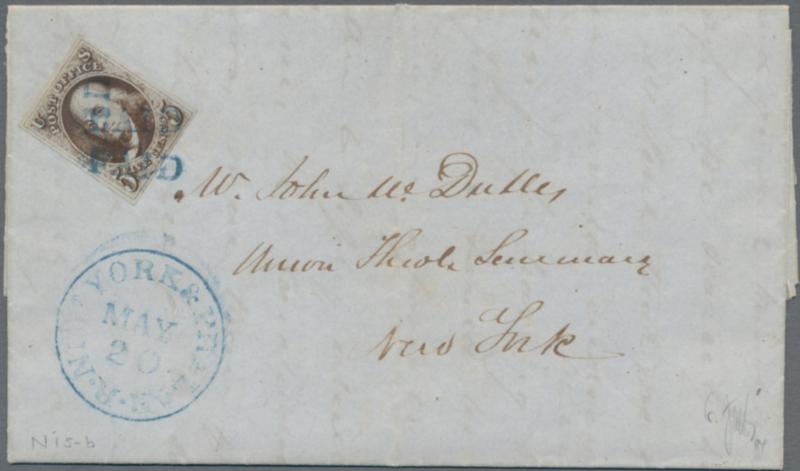 U S
POST OFFICE
PAID
PAID
Mr. John W. Dulles
Union Theol. Seminary
New York
YORK & PHILA R.R.
MAY
20
N15-b